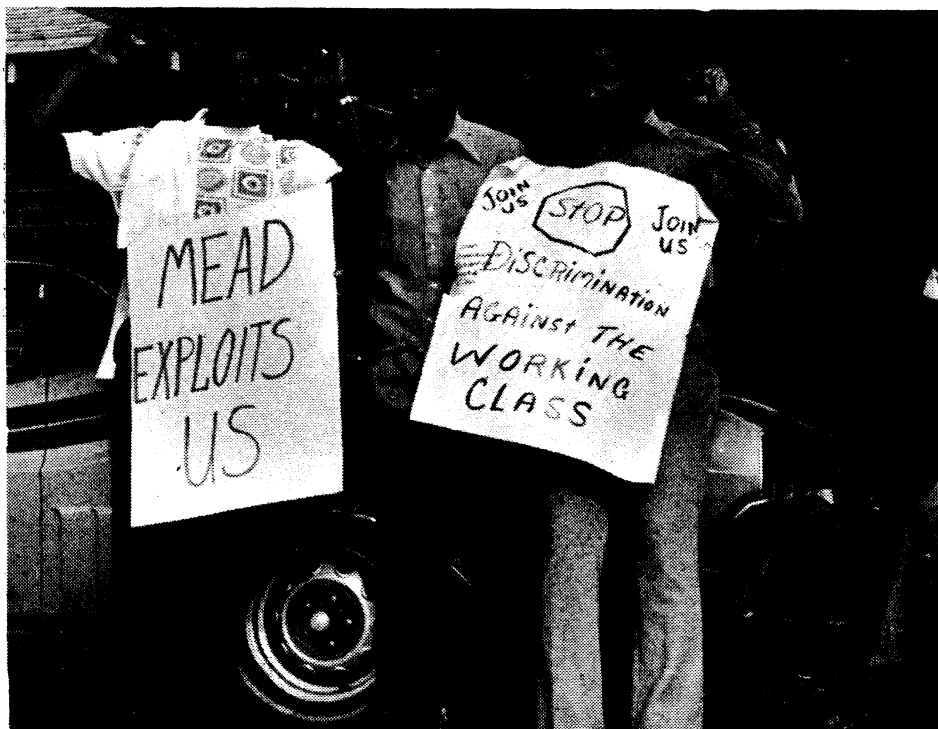 MEAD
EXPLOITS
US
JOIN
US
STOP
JOIN
US
DISCRIMINATION
AGAINST THE
WORKING
CLASS